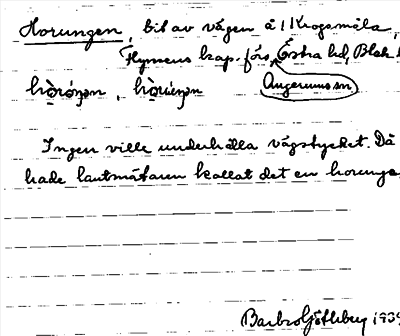 Horungen, bit av vägen å 1 Krogsmåla,
Flymens kap.-förs, Östra hd, Blek
Augerums sn
Ingen ville underhålla vägstycket. Då
hade lantmätaren kallat det en horunge.
Barbro Götheberg 1939